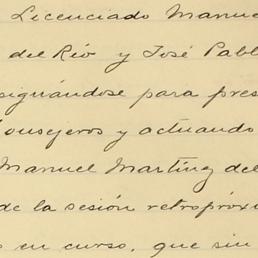 Licenciado Manue
del Río y José Pabl
signándose para pres
Consejeros y actuando
Manuel Martínz del
de la sesión retropróx
o en curso, que sin